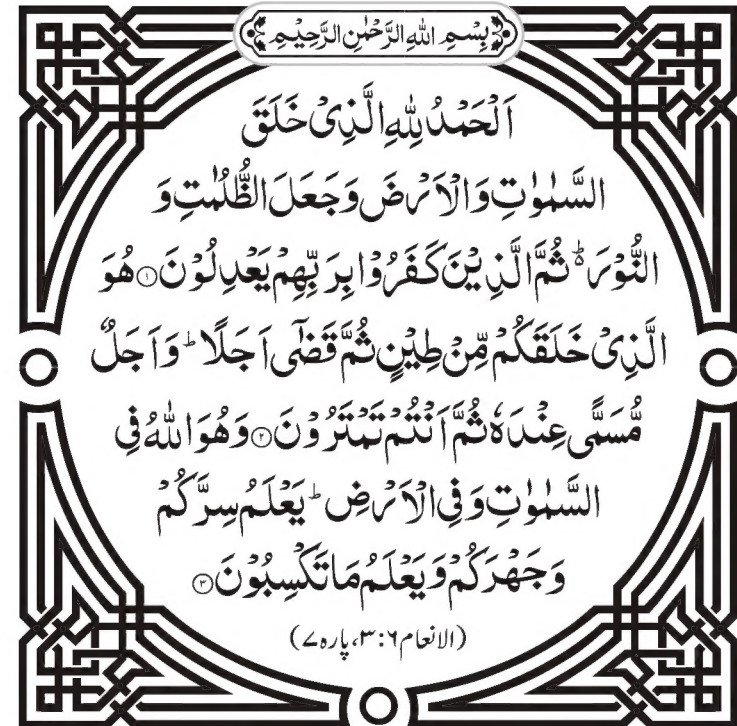 بِسْمِ اللّٰهِ الرَّحْمٰنِ الرَّحِیْمِ
اَلْحَمْدُ لِلّٰهِ الَّذِیْ خَلَقَ
السَّمٰوٰتِ وَ الْاَرْضَ وَ جَعَلَ الظُّلُمٰتِ وَ
النُّوْرَ ؕ ثُمَّ الَّذِیْنَ كَفَرُوْا بِرَبِّهِمْ یَعْدِلُوْنَ ۝۱ هُوَ
الَّذِیْ خَلَقَكُمْ مِّنْ طِیْنٍ ثُمَّ قَضٰۤی اَجَلًا ؕ وَ اَجَلٌ
مُّسَمًّی عِنْدَهٗ ثُمَّ اَنْتُمْ تَمْتَرُوْنَ ۝۲ وَ هُوَ اللّٰهُ فِی
السَّمٰوٰتِ وَ فِی الْاَرْضِ ؕ یَعْلَمُ سِرَّكُمْ
وَ جَهْرَكُمْ وَ یَعْلَمُ مَا تَكْسِبُوْنَ ۝۳
(الانعام ۶:۳، پارہ ۷)